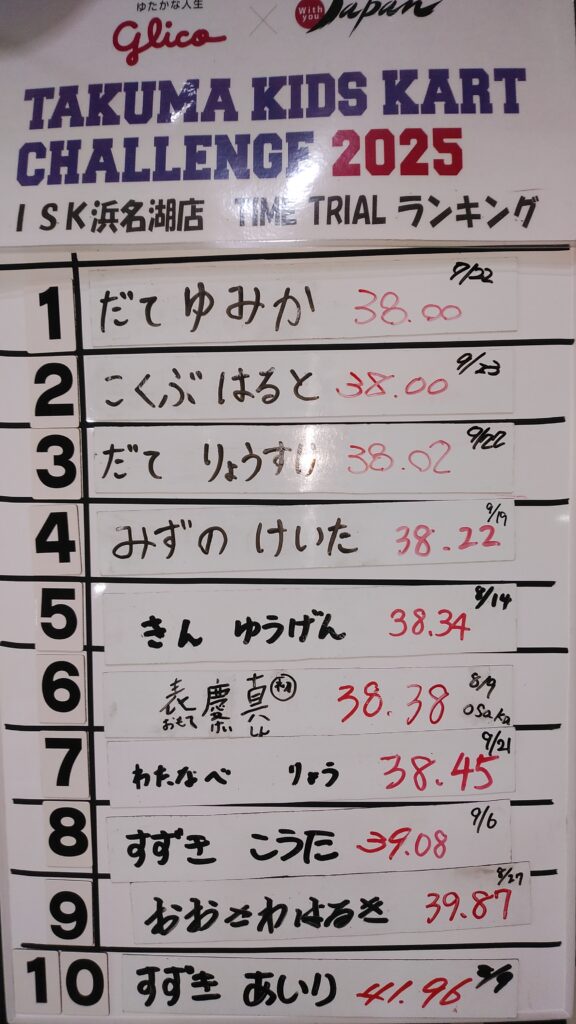 ゆたかな人生
Glico × With you Japan
TAKUMA KIDS KART
CHALLENGE 2025
ISK浜名湖店 TIME TRIAL ランキング
1 だて ゆみか 38.00 9/22
2 こくぶ はると 38.00 9/23
3 だて りょうすけ 38.02 9/22
4 みずの けいた 38.22 9/19
5 きん ゆうげん 38.34 8/14
6 表 慶真 38.38 8/9
おもて しん OSaKa
7 わたなべ りょう 38.45 9/21
8 すずき こうた 39.08 9/6
9 おおさわはるき 39.87 8/27
10 すずき あいり 41.96